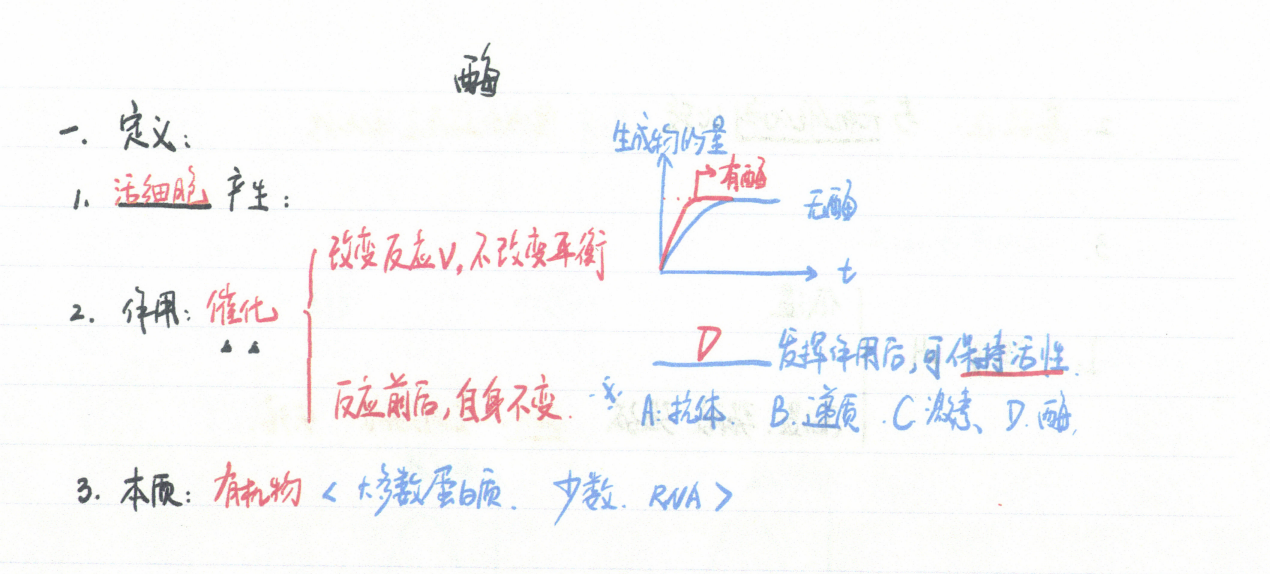 酶
一. 定义:
生成物的量
有酶
无酶
t
1. 活细胞产生:
2. 作用: 催化
改变反应V, 不改变平衡
反应前后, 自身不变.
D 发挥作用后, 可保持活性.
※ A.抗体 B.递质. C激素、D.酶.
3. 本质: 有机物 < 大多数蛋白质. 少数. RNA >